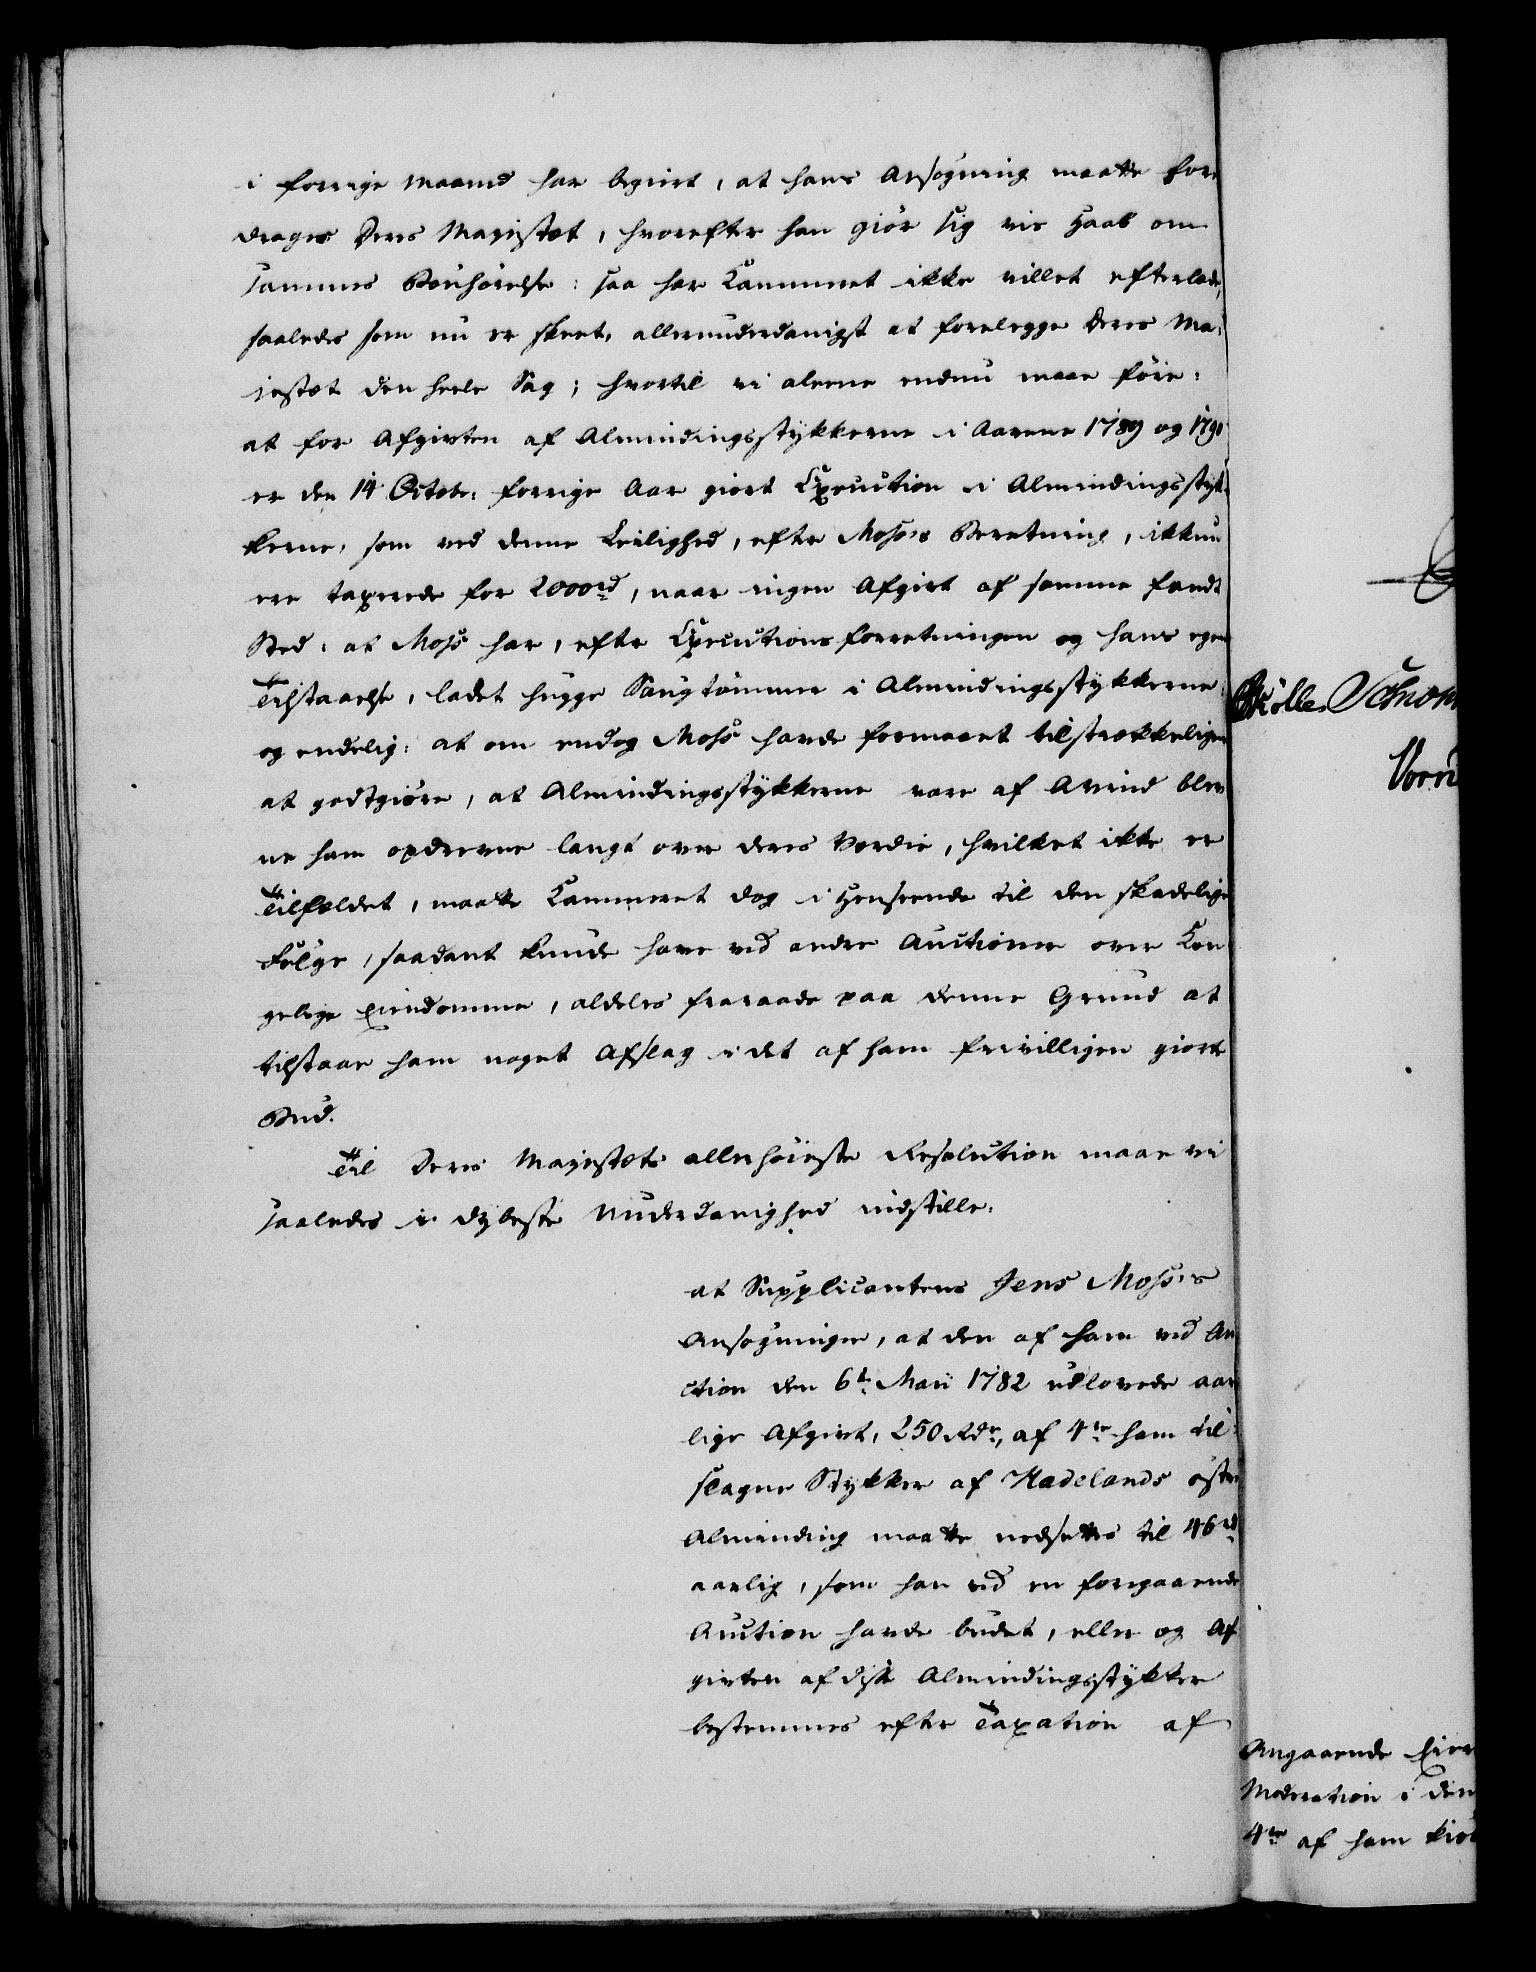 i forrige Maaned har begiert, at hans Ansøgning maatte fore
drages Deres Majestæt, hvorefter han giør sig vis Haab om
sammes Bønhørelse: saa har Kammeret ikke villet efterlade,
saaledes som nu er skeet, allerunderdanigst at forelegge Deres Ma-
jestæt den heele Sag; hvortil vi alene endnu maae føie:
at for Afgivten af Almindingsstykkerne i Aarene 1789 og 1790
er den 14 Octobr: forrige Aar giort Execution i Almindingsstyk-
kerne, som ved denne Leilighed, efter Moss's Beretning, ikkun
ere taxerede for 2000rd, naar ingen Afgivt af samme fandt
Sted: at Moss har, efter Executionsforretningen og hans egen
Tilstaaelse, ladet hugge Saugtømmer i Almindingsstykkerne:
og endelig: at om endog Moss havde formaaet tilstrækkeligen
at godtgiøre, at Almindingsstykkerne vare af Avind blev
ne ham opdrevne langt over deres Værdie, hvilket ikke er
Tilfældet, maatte Kammeret dog i Henseende til den skadelige
Følge, saadant kunde have ved andre Auctioner over Kon
gelige Eiendomme, aldeles fraraade paa denne Grund at
tilstaae ham noget Afslag i det af ham frivilligen giorte
Bud.
Til Deres Majestæts allerhøieste Resolution maae vi
saaledes i dybeste Underdanighed indstille:
at Supplicantens Jens Moss's
Ansøgninger, at den af ham ved Au
ction den 6te Maii 1782 udlovede aar
lige Afgivt, 250 Rdr., af 4re ham til-
slagne Stykker af Hadelands østre
Alminding maatte nedsettes til 46rd
aarlig, som han ved en foregaaende
Auction havde budet, eller og Af
givten af disse Almindingsstykker
bestemmes efter Taxation af
Schmom
Angaaende Eier
Moderation i den
4re af ham kiøb